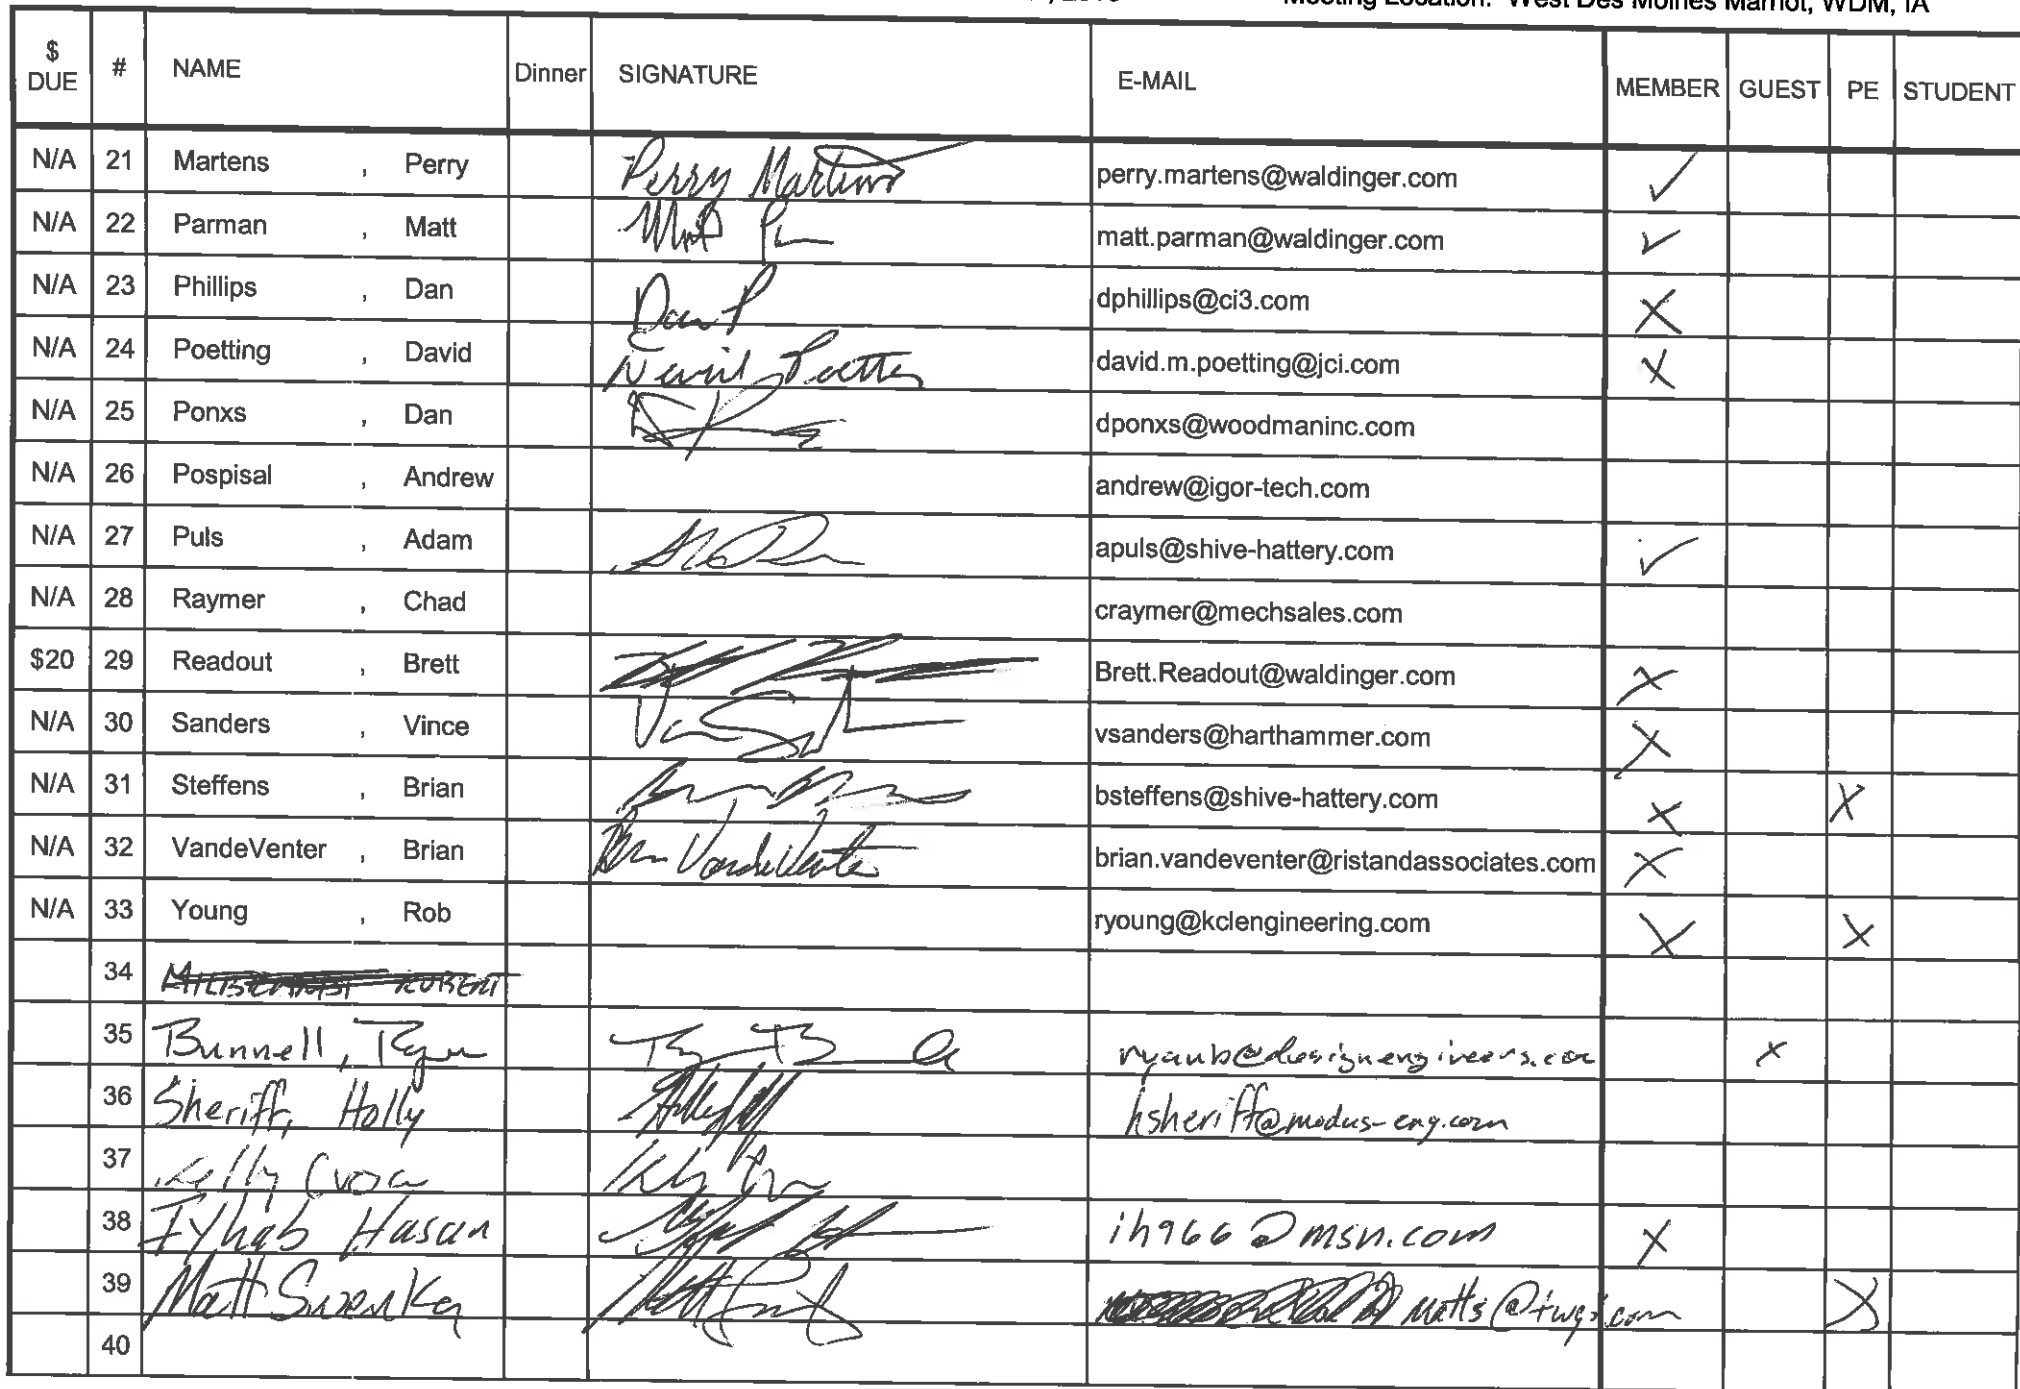 Meeting Location: West Des Moines Marriot, WDM, IA
$ DUE # NAME Dinner SIGNATURE E-MAIL MEMBER GUEST PE STUDENT
N/A 21 Martens , Perry Perry Martens perry.martens@waldinger.com ✓
N/A 22 Parman , Matt matt.parman@waldinger.com ✓
N/A 23 Phillips , Dan Dan P dphillips@ci3.com X
N/A 24 Poetting , David David Poetting david.m.poetting@jci.com X
N/A 25 Ponxs , Dan dponxs@woodmaninc.com
N/A 26 Pospisal , Andrew andrew@igor-tech.com
N/A 27 Puls , Adam apuls@shive-hattery.com ✓
N/A 28 Raymer , Chad craymer@mechsales.com
$20 29 Readout , Brett Brett.Readout@waldinger.com X
N/A 30 Sanders , Vince vsanders@harthammer.com X
N/A 31 Steffens , Brian bsteffens@shive-hattery.com X X
N/A 32 VandeVenter , Brian Brian VandeVenter brian.vandeventer@ristandassociates.com X
N/A 33 Young , Rob ryoung@kclengineering.com X X
34 ROBERT
35 Bunnell, Ryan ryanb@designengineers.com X
36 Sheriff, Holly hsheriff@modus-eng.com
37 Kelly
38 Iyhab Hasan ih966@msn.com X
39 Matt X
40